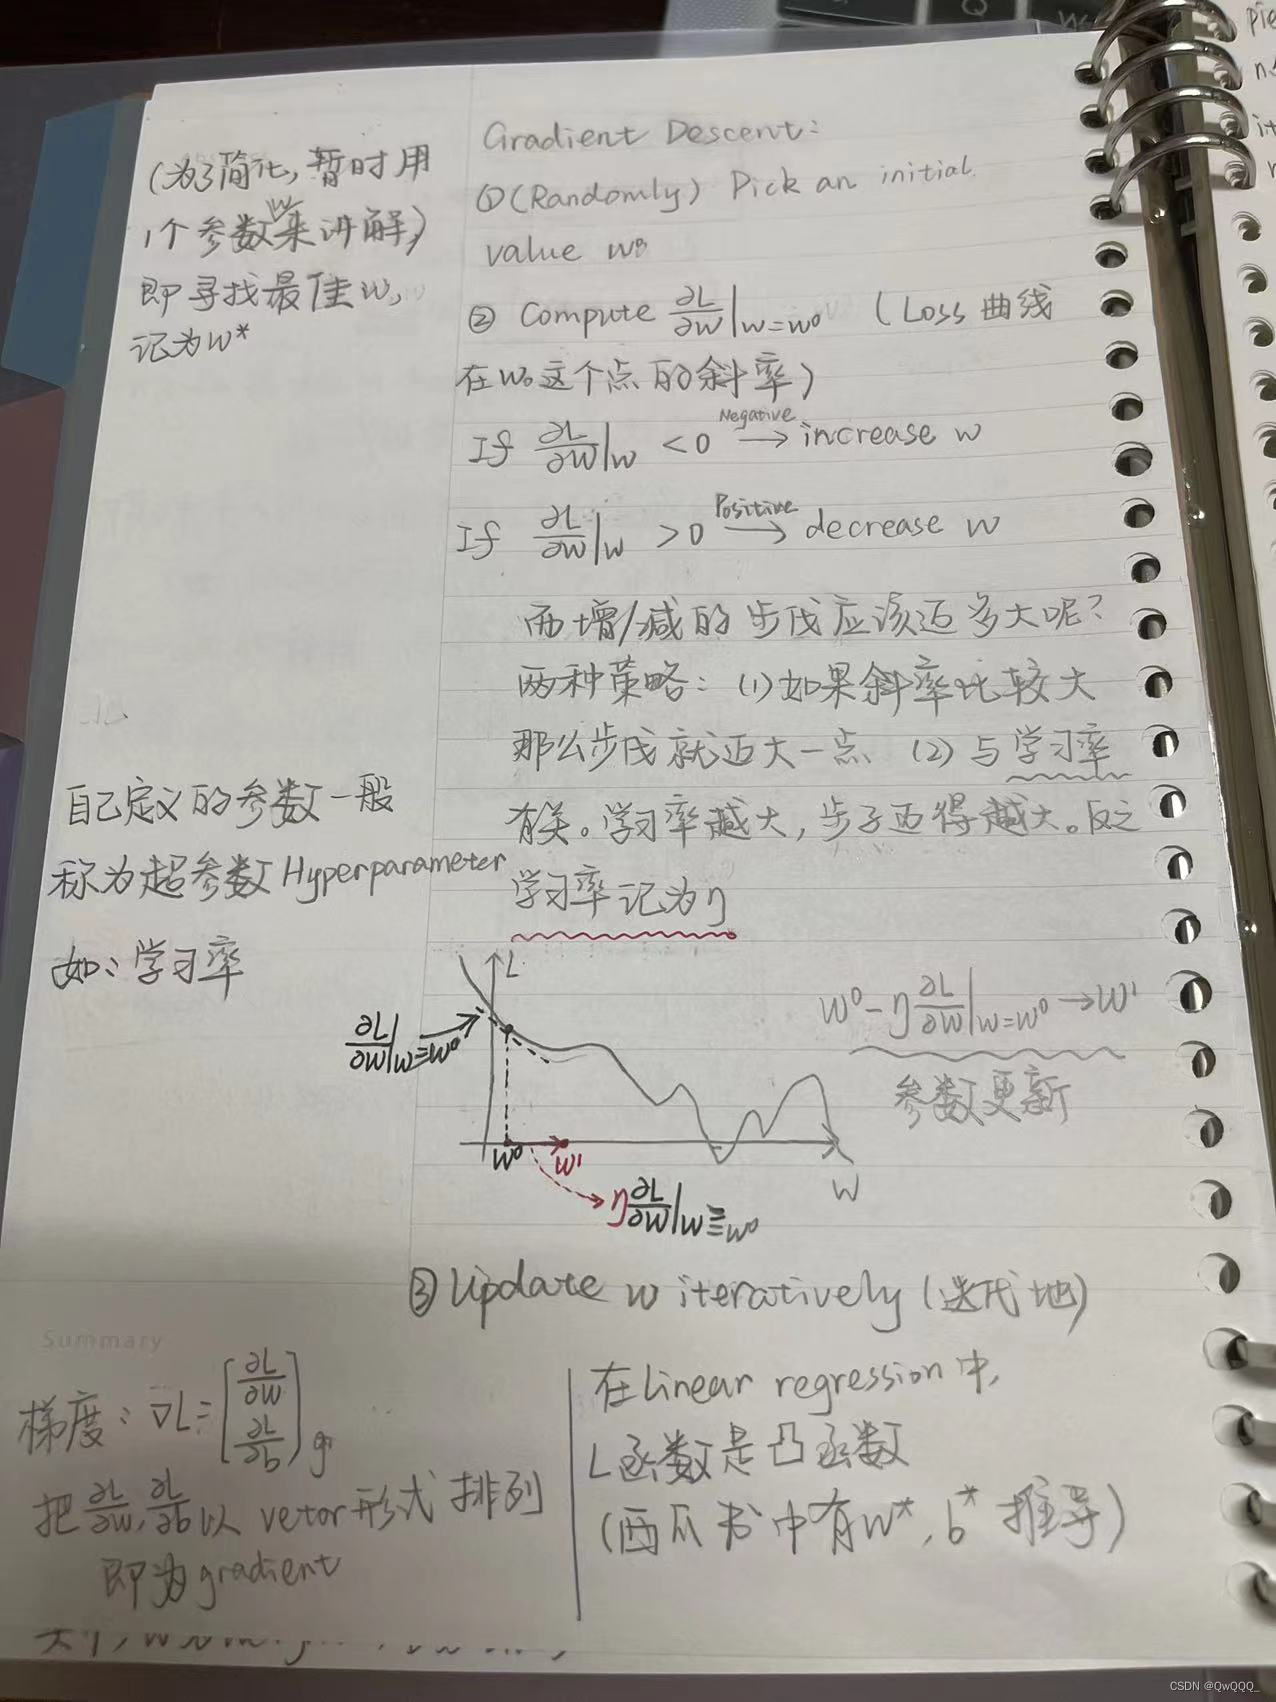 Gradient Descent:
①(Randomly) Pick an initial
value w⁰
② Compute ∂L/∂w|w=w⁰ (Loss 曲线
在w₀这个点的斜率)
If ∂L/∂w|w <0 Negative → increase w
If ∂L/∂w|w >0 Positive → decrease w
而增/减的步伐应该迈多大呢?
两种策略: (1)如果斜率比较大
那么步伐就迈大一点 (2)与学习率
有关。学习率越大, 步子迈得越大。反之
学习率记为η
(为了简化, 暂时用
1个参数w来讲解)
即寻找最佳w,
记为w*
自己定义的参数一般
称为超参数Hyperparameter
如: 学习率
L
∂L/∂w|w=w⁰
w⁰ w¹
W
η∂L/∂w|w=w⁰
w⁰-η∂L/∂w|w=w⁰→w¹
参数更新
③Update w iteratively (迭代地)
Summary
梯度: ∇L=[∂L/∂w ∂L/∂b] g
把∂L/∂w,∂L/∂b以vetor形式排列
即为gradient
在Linear regression中,
L函数是凸函数
(西瓜书中有w*, b*推导)
Q
W
CSDN @QwQQQ_